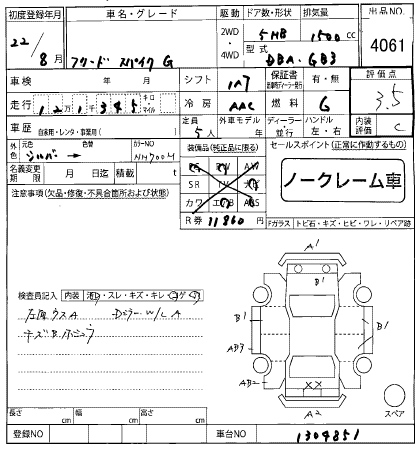 初度登録年月 車名・グレード 駆動 ドア数・形状 排気量 出品NO.
22/8月 フリード スパイク G 2WD・4WD 5HB 1500cc 4061
型式 DBA-GB3
車検 年 月 シフト IAT 保証書 有・無 評価点 3.5
走行 12万1千345 キロ・マイル 冷房 AAC 燃料 G
車歴 自家用・レンタ・事業用( ) 定員 5人 外車モデル 年 ディーラー・並行 ハンドル 左・右 内装評価 C
外色 元色 シルバー 色替 カラーNO NH700M 装備品(純正品に限る) セールスポイント(正常に作動するもの)
名義変更期限 月 日迄 積載 t PS PW AW
注意事項(欠品・修復・不具合箇所および状態) SR TV
カワ エアB ABS
ノークレーム車
R券 11860円 Fガラス トビ石・キズ・ヒビ・ワレ・リペア跡
A1
検査員記入 内装 ・スレ・キズ・キレ・コゲ
B1
B1
B1
AB2
××
A2
スペア
長さ cm 幅 cm 高さ cm
登録NO 車台NO 1304851